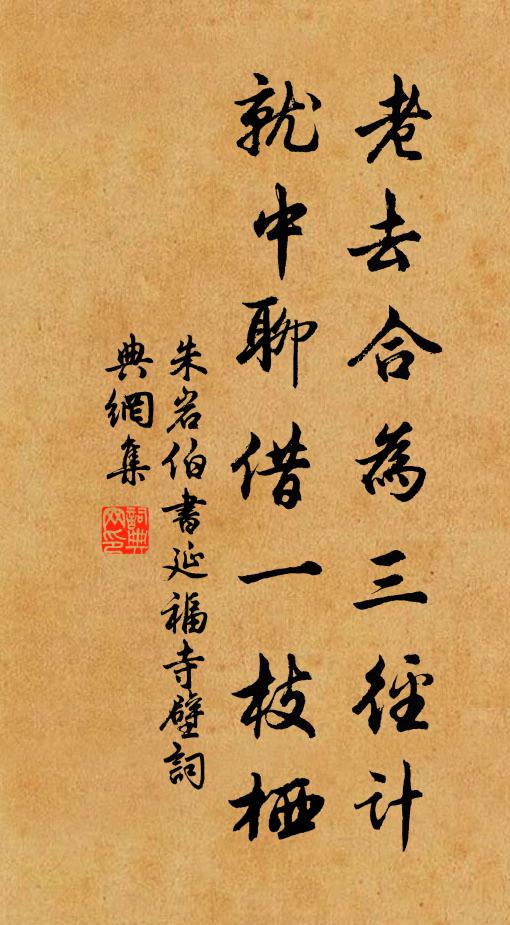 老去合為三徑計
就中聊借一枝栖
朱岩伯書延福寺壁詞
典網集
詞典网印